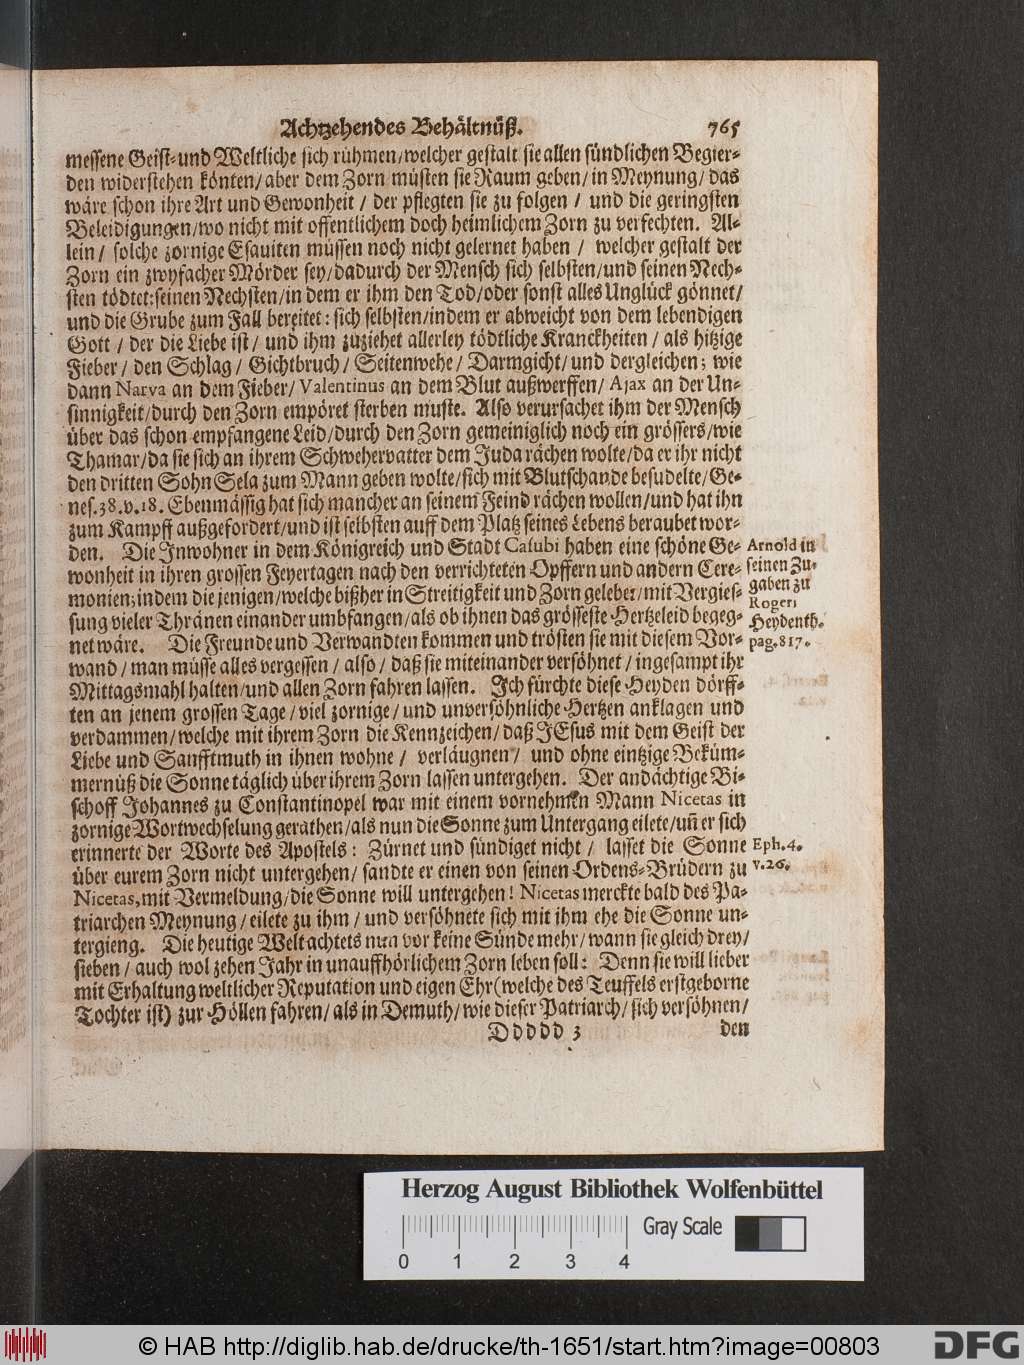 Achtzehendes Behältnüß. 765
messene Geist- und Weltliche sich rühmen/welcher gestalt sie allen sündlichen Begier-
den widerstehen könten/aber dem Zorn müsten sie Raum geben/in Meynung/das
wäre schon ihre Art und Gewonheit / der pflegten sie zu folgen / und die geringsten
Beleidigungen/wo nicht mit offentlichem doch heimlichem Zorn zu verfechten. Al-
lein / solche zornige Esauiten müssen noch nicht gelernet haben / welcher gestalt der
Zorn ein zwyfacher Mörder sey/dadurch der Mensch sich selbsten/und seinen Nech-
sten tödtet: seinen Nechsten/in dem er ihm den Tod/oder sonst alles Unglück gönnet/
und die Grube zum Fall bereitet: sich selbsten/indem er abweicht von dem lebendigen
Gott / der die Liebe ist / und ihm zuziehet allerley tödtliche Kranckheiten / als hitzige
Fieber / den Schlag / Gichtbruch / Seitenwehe / Darmgicht/und dergleichen; wie
dann Narva an dem Fieber/ Valentinus an dem Blut außwerffen/ Ajax an der Un-
sinnigkeit/durch den Zorn empöret sterben muste. Also verursachet ihm der Mensch
über das schon empfangene Leid/durch den Zorn gemeiniglich noch ein grössers/wie
Thamar/da sie sich an ihrem Schwehervatter dem Juda rächen wolte/da er ihr nicht
den dritten Sohn Sela zum Mann geben wolte/sich mit Blutschande besudelte/Ge-
nes.38.v.18. Ebenmässig hat sich mancher an seinem Feind rächen wollen/und hat ihn
zum Kampff außgefordert/und ist selbsten auff dem Platz seines Lebens beraubet wor-
den. Die Inwohner in dem Königreich und Stadt Calubi haben eine schöne Ge-
wonheit in ihren grossen Feyertagen nach den verrichteten Opffern und andern Cere-
monien; indem die jenigen/welche bißher in Streitigkeit und Zorn gelebet/mit Vergies-
sung vieler Thränen einander umbfangen/als ob ihnen das grösseste Hertzeleid begeg-
net wäre. Die Freunde und Verwandten kommen und trösten sie mit diesem Vor-
wand / man müsse alles vergessen / also / daß sie miteinander versöhnet / ingesampt ihr
Mittagsmahl halten/und allen Zorn fahren lassen. Ich fürchte diese Heyden dörff-
ten an jenem grossen Tage / viel zornige / und unversöhnliche Hertzen anklagen und
verdammen/welche mit ihrem Zorn die Kennzeichen/daß JEsus mit dem Geist der
Liebe und Sanfftmuth in ihnen wohne / verläugnen / und ohne eintzige Beküm-
mernüß die Sonne täglich über ihrem Zorn lassen untergehen. Der andächtige Bi-
schoff Johannes zu Constantinopel war mit einem vornehmen Mann Nicetas in
zornige Wortwechselung gerathen/als nun die Sonne zum Untergang eilete/uñ er sich
erinnerte der Worte des Apostels: Zürnet und sündiget nicht / lasset die Sonne
über eurem Zorn nicht untergehen/ sandte er einen von seinen Ordens-Brüdern zu
Nicetas, mit Vermeldung/die Sonne will untergehen! Nicetas merckte bald des Pa-
triarchen Meynung / eilete zu ihm / und versöhnete sich mit ihm ehe die Sonne un-
tergieng. Die heutige Welt achtets nun vor keine Sünde mehr/wann sie gleich drey/
sieben / auch wol zehen Jahr in unauffhörlichem Zorn leben soll: Denn sie will lieber
mit Erhaltung weltlicher Reputation und eigen Ehr (welche des Teuffels erstgeborne
Tochter ist) zur Höllen fahren/als in Demuth/wie dieser Patriarch/sich versöhnen/
Ddddd 3 den
Arnold in
seinen Zu-
gaben zu
Rogeri
Heydenth.
pag.817.
Eph.4.
v.26.
Herzog August Bibliothek Wolfenbüttel
Gray Scale
0 1 2 3 4
© HAB http://diglib.hab.de/drucke/th-1651/start.htm?image=00803
DFG